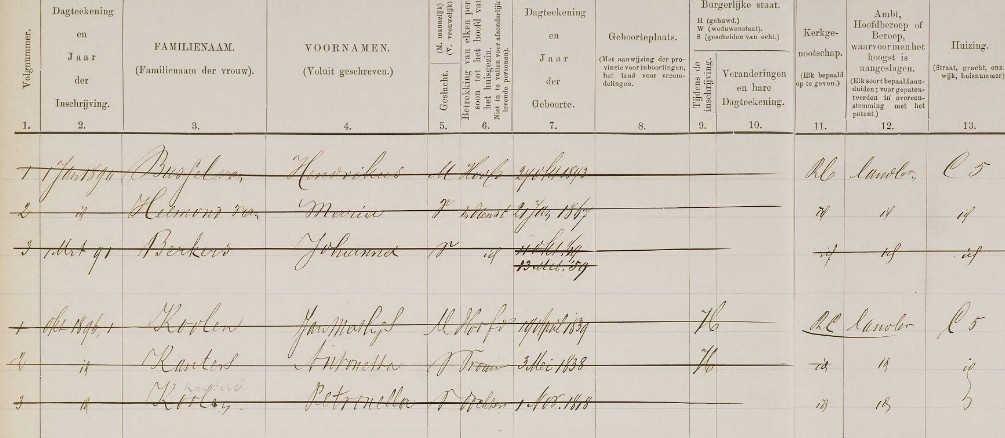 Volgnummer.
Dagteekening
en
Jaar
der
Inschrijving.
FAMILIENAAM.
(Familienaam der vrouw).
VOORNAMEN.
(Voluit geschreven.)
(M. mannelijk)
(V. vrouwelijk)
Geslacht.
Betrekking van elken per-
soon tot het hoofd van
het huisgezin.
Dagteekening
en
Jaar
der
Geboorte.
Geboorteplaats.
(Met aanwijzing der pro-
vincie voor inboorlingen,
het land voor vreem-
delingen.
Burgerlijke staat.
H (gehuwd.)
W (weduwenstaat).
S (gescheiden van echt.)
Tijdens de
inschrijving.
Veranderingen
en hare
Dagteekening.
Kerkge-
nootschap.
(Elk bepaald
op te geven.)
Ambt,
Hoofdberoep of
Beroep,
waarvoor men het
hoogst is
aangeslagen.
(Elk soort bepaald aan-
duiden; voor gepaten-
teerden in overeen-
stemming met het
patent.)
Huizing.
(Straat, gracht, enz.
wijk, huisnummer)
1. 2. 3. 4. 5. 6. 7. 8. 9. 10. 11. 12. 13.
1 1 Jan 1890 Bussel van Hendrikus M Hoofd RC landbr. C 5
2 id Helmond van Maria V dienst 21 Jan 1867 id id id
3 1 Mrt 91 Berkers Johanna V id id id id
13 59
1 Okt 1896 Koolen Jan Mathijs M Hoofd 19 April 1839 H RC landbr C 5
2 id Kanters Antonetta V Vrouw 3 Mei 1838 H id id id
3 id Koolen Petronella V dochter 1 Nov. id id